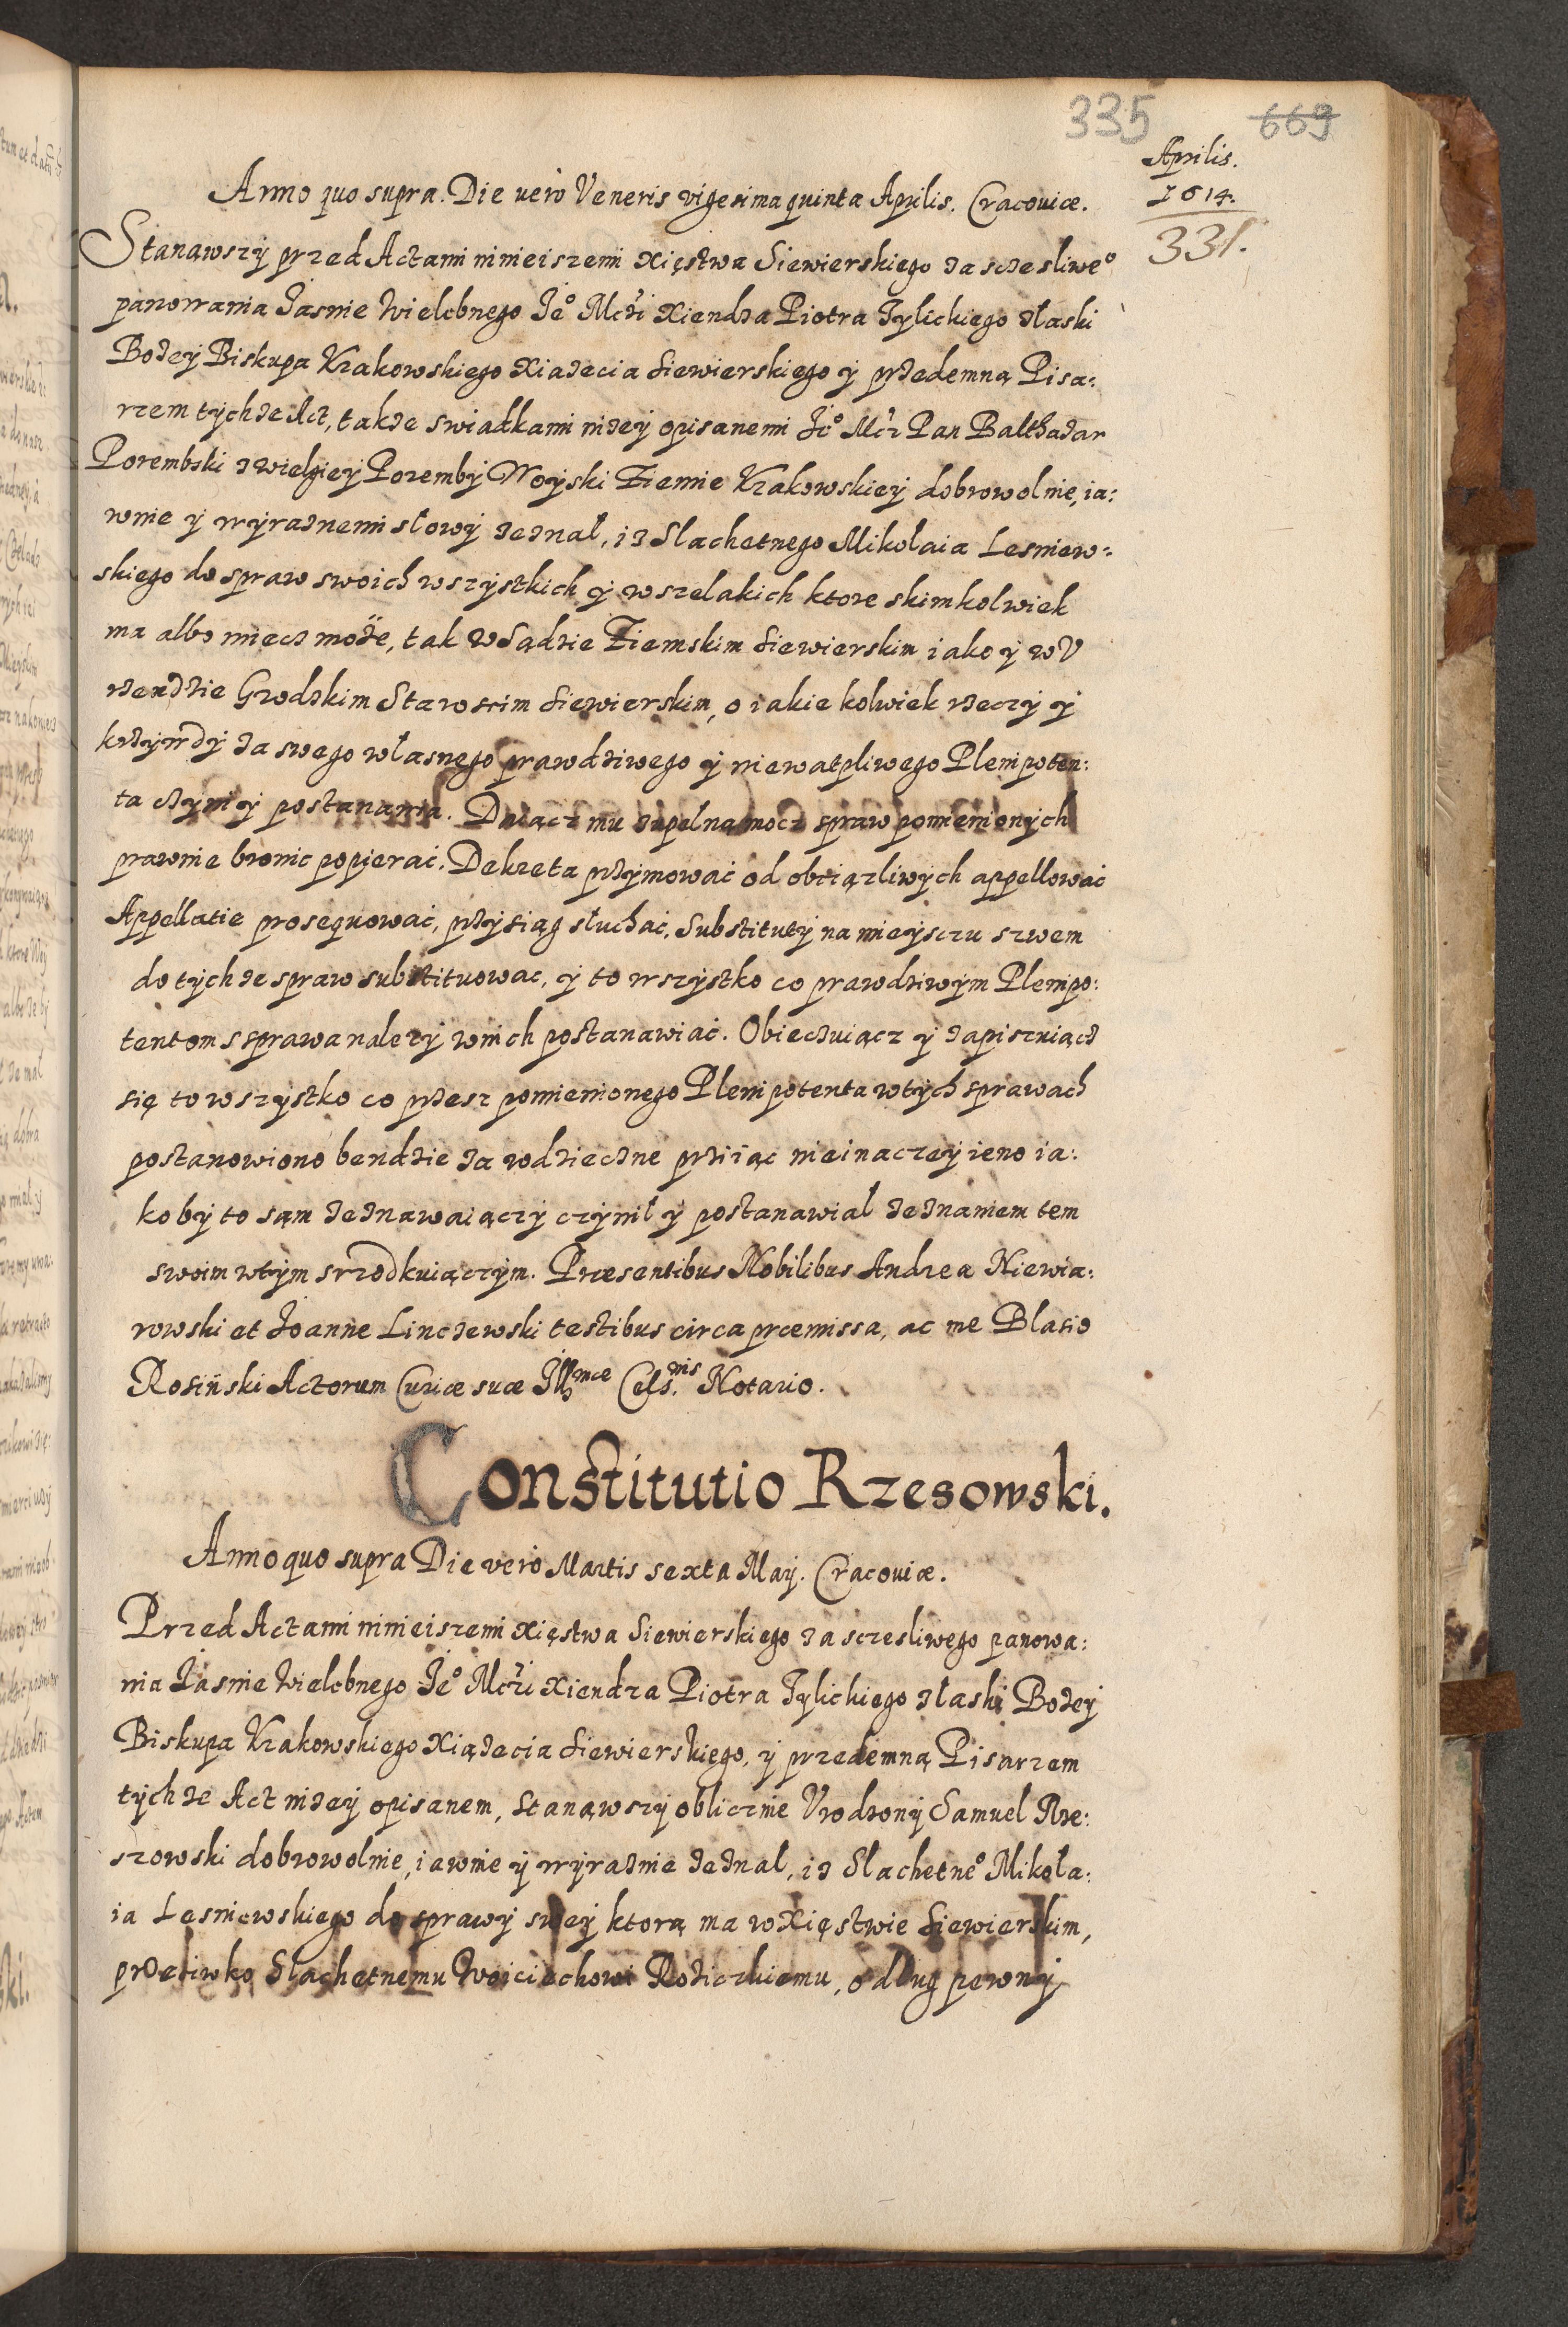 335 669
Aprilis.
1614.
331.
Anno quo supra. Die vero Veneris vigesima quinta Aprilis. Cracoviæ.
Stanąwszy przed Actami ninieiszemi xięstwa Siewierskiego za sczesliweo
panowania Jasnie Wielebnego Jeo Mczi Xiendza Piotra Tylickiego złaski
Bozey Biskupa Krakowskiego Xiazecia Siewierskiego y przedemną Pisa:
rzem tychze Act, takze swiadkami nizey opisanemi Jeo Mcz Pan Balthazar
Porembski zwielgiey Poremby Woyski Ziemie Krakowskiey dobrowolnie, ia:
wnie y wyraznemi słowy zeznał, iz Slachetnego Mikołaia Lesniew:
skiego do spraw swoich wszystkich y wszelakich ktore skimkolwiek
ma albo miecz może, tak w Sądzie Ziemskim Siewierskim iako y w V
rzendzie Grodzkim Staroscim Siewierskim, o iakie kolwiek rzeczy y
krzywdy za swego własnego prawdziwego y niewatpliwego Plenipoten:
ta czyni y postanawia. Daiącz mu zupełną mocz spraw pomienionych
prawnie bronic popierać. Dekreta przymować od obciązliwych appellować
Appellatie prosequować, przysiąg słuchać, Substituty na mieysczu szwem
do tychze spraw substituowac, y to wszystko co prawdziwym Plenipo:
tentom ssprawa nalezy wnich postanawiać. Obieczuiącz y zapiszuiącz
się to wszystko co przesz pomienionego Plenipotenta wtych sprawach
postanowiono bendzie za wdzieczne prziiąc nie inaczey ieno ia:
koby to sąm zeznawaiączy czynił y postanawial zeznaniem tem
swoim wtym srzodkuiączym. Præsentibus Nobilibus Andrea Niewia:
rowski et Joanne Linczewski testibus circa præmissa, ac me Blasio
Rosiński Actorum Curiæ suæ Illmæ Cels.nis Notario.
Constitutio Rzesowski.
Anno quo supra Die vero Martis sexta May. Cracoviæ.
Przed Actami ninieiszemi xięstwa Siewierskiego za sczesliwego panowa:
nia Jasnie Wielebnego Jeo Mczi Xiendza Piotra Tylickiego złaski Bozey
Biskupa Krakowskiego Xiązecia Siewierskiego, y przedemną Pisarzem
tychze Act nizey opisanem, Stanąwszy oblicznie Vrodzony Samuel Rze:
szowski dobrowolnie, iawnie y wyraznie zeznal, iz Slachetneo Mikoła:
ia Lesniewskiego do sprawy swey ktorą ma w Xięstwie Siewierskim,
przeciwko Slachetnemu Woiciechowi Roziczkiemu, o dług pewny